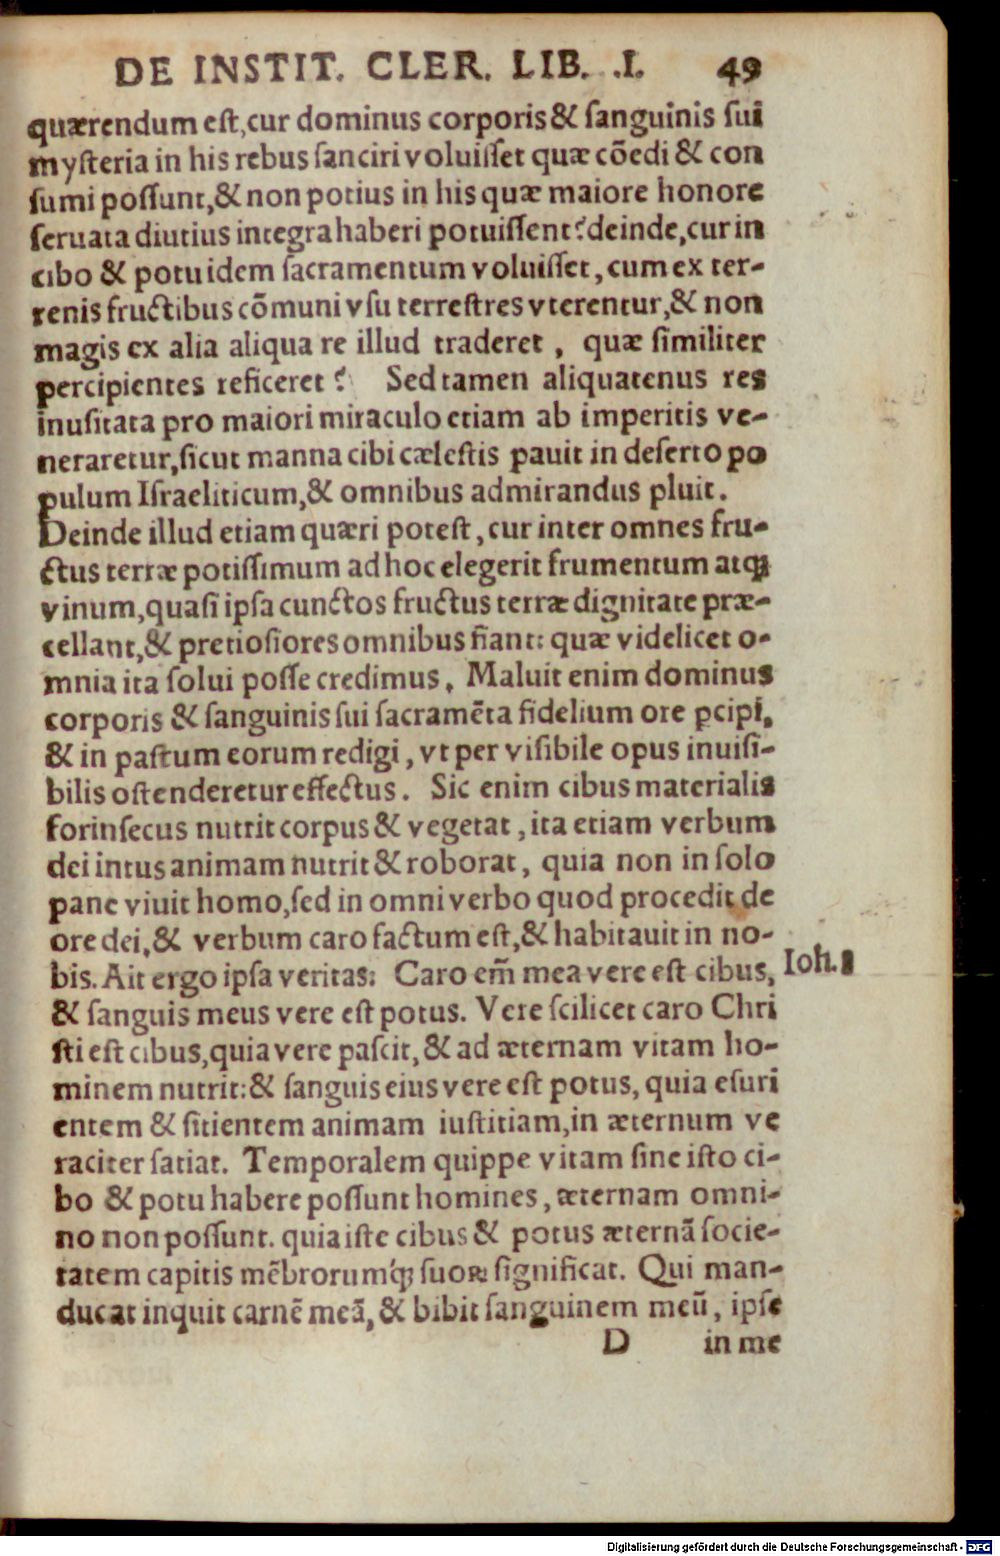 DE INSTIT. CLER. LIB. .I. 49
quærendum est,cur dominus corporis & ſanguinis ſui
myſteria in his rebus ſanciri voluiſſet quæ cõedi & con
ſumi poſſunt,& non potius in his quæ maiore honore
ſeruata diutius integra haberi potuiſſent? deinde,cur in
cibo & potu idem ſacramentum voluiſſet, cum ex ter-
renis fructibus cõmuni vſu terreſtres vterentur,& non
magis ex alia aliqua re illud traderet , quæ ſimiliter
percipientes reficeret? Sed tamen aliquatenus res
inuſitata pro maiori miraculo etiam ab imperitis ve-
neraretur,ſicut manna cibi cæleſtis pauit in deſerto po
pulum Iſraeliticum,& omnibus admirandus pluit.
Deinde illud etiam quæri poteſt, cur inter omnes fru-
ctus terræ potiſſimum ad hoc elegerit frumentum atq;
vinum,quaſi ipſa cunctos fructus terræ dignitate præ-
cellant,& pretioſiores omnibus fiant: quæ videlicet o-
mnia ita ſolui poſſe credimus. Maluit enim dominus
corporis & ſanguinis ſui ſacramẽta fidelium ore ꝑcipi,
& in paſtum eorum redigi, vt per viſibile opus inuiſi-
bilis oſtenderetur effectus. Sic enim cibus materialis
forinſecus nutrit corpus & vegetat , ita etiam verbum
dei intus animam nutrit & roborat, quia non in ſolo
pane viuit homo,ſed in omni verbo quod procedit de
ore dei,& verbum caro factum eſt,& habitauit in no-
bis. Ait ergo ipſa veritas: Caro em̃ mea vere eſt cibus, Ioh.
& ſanguis meus vere eſt potus. Vere ſcilicet caro Chri
ſti eſt cibus,quia vere paſcit,& ad æternam vitam ho-
minem nutrit:& ſanguis eius vere eſt potus, quia eſuri
entem & ſitientem animam iuſtitiam,in æternum ve
raciter ſatiat. Temporalem quippe vitam ſine iſto ci-
bo & potu habere poſſunt homines, æternam omni-
no non poſſunt. quia iſte cibus & potus æternã ſocie-
tatem capitis mẽbrorumq́; ſuoꝝ ſignificat. Qui man-
ducat inquit carnẽ meã, & bibit ſanguinem meũ, ipſe
D in me
Digitalisierung gefördert durch die Deutsche Forschungsgemeinschaft - DFG